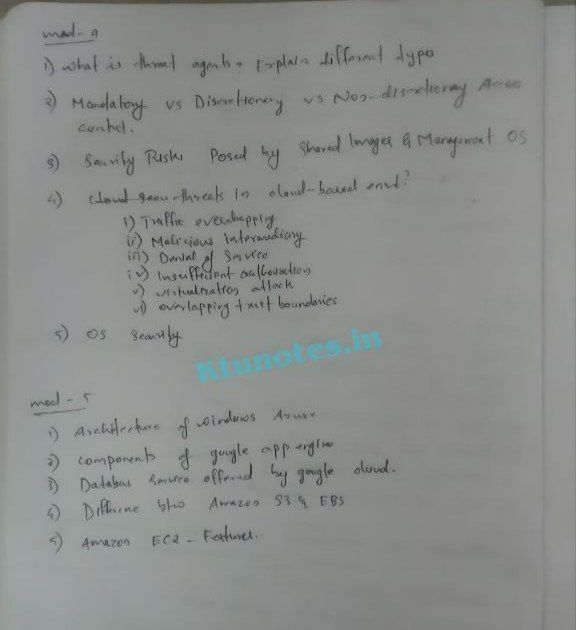 mod-4
1) What is threat agents? Explain different type
2) Mandatory vs Discretionary vs Non-discretionary Access
control.
3) Security Risks Posed by Shared Images & Management OS
4) threats in cloud-based envt?
i) Traffic eavesdropping
ii) Malicious intermediary
iii) Denial of Service
iv) Insufficient authorization
v) virtualization attack
vi) overlapping trust boundaries
5) OS Security
Ktunotes.in
mod-5
1) Architecture of windows Azure
2) components of google app engine
3) Database service offered by google cloud.
4) Difference btw Amazon S3 & EBS
5) Amazon EC2 - Features.